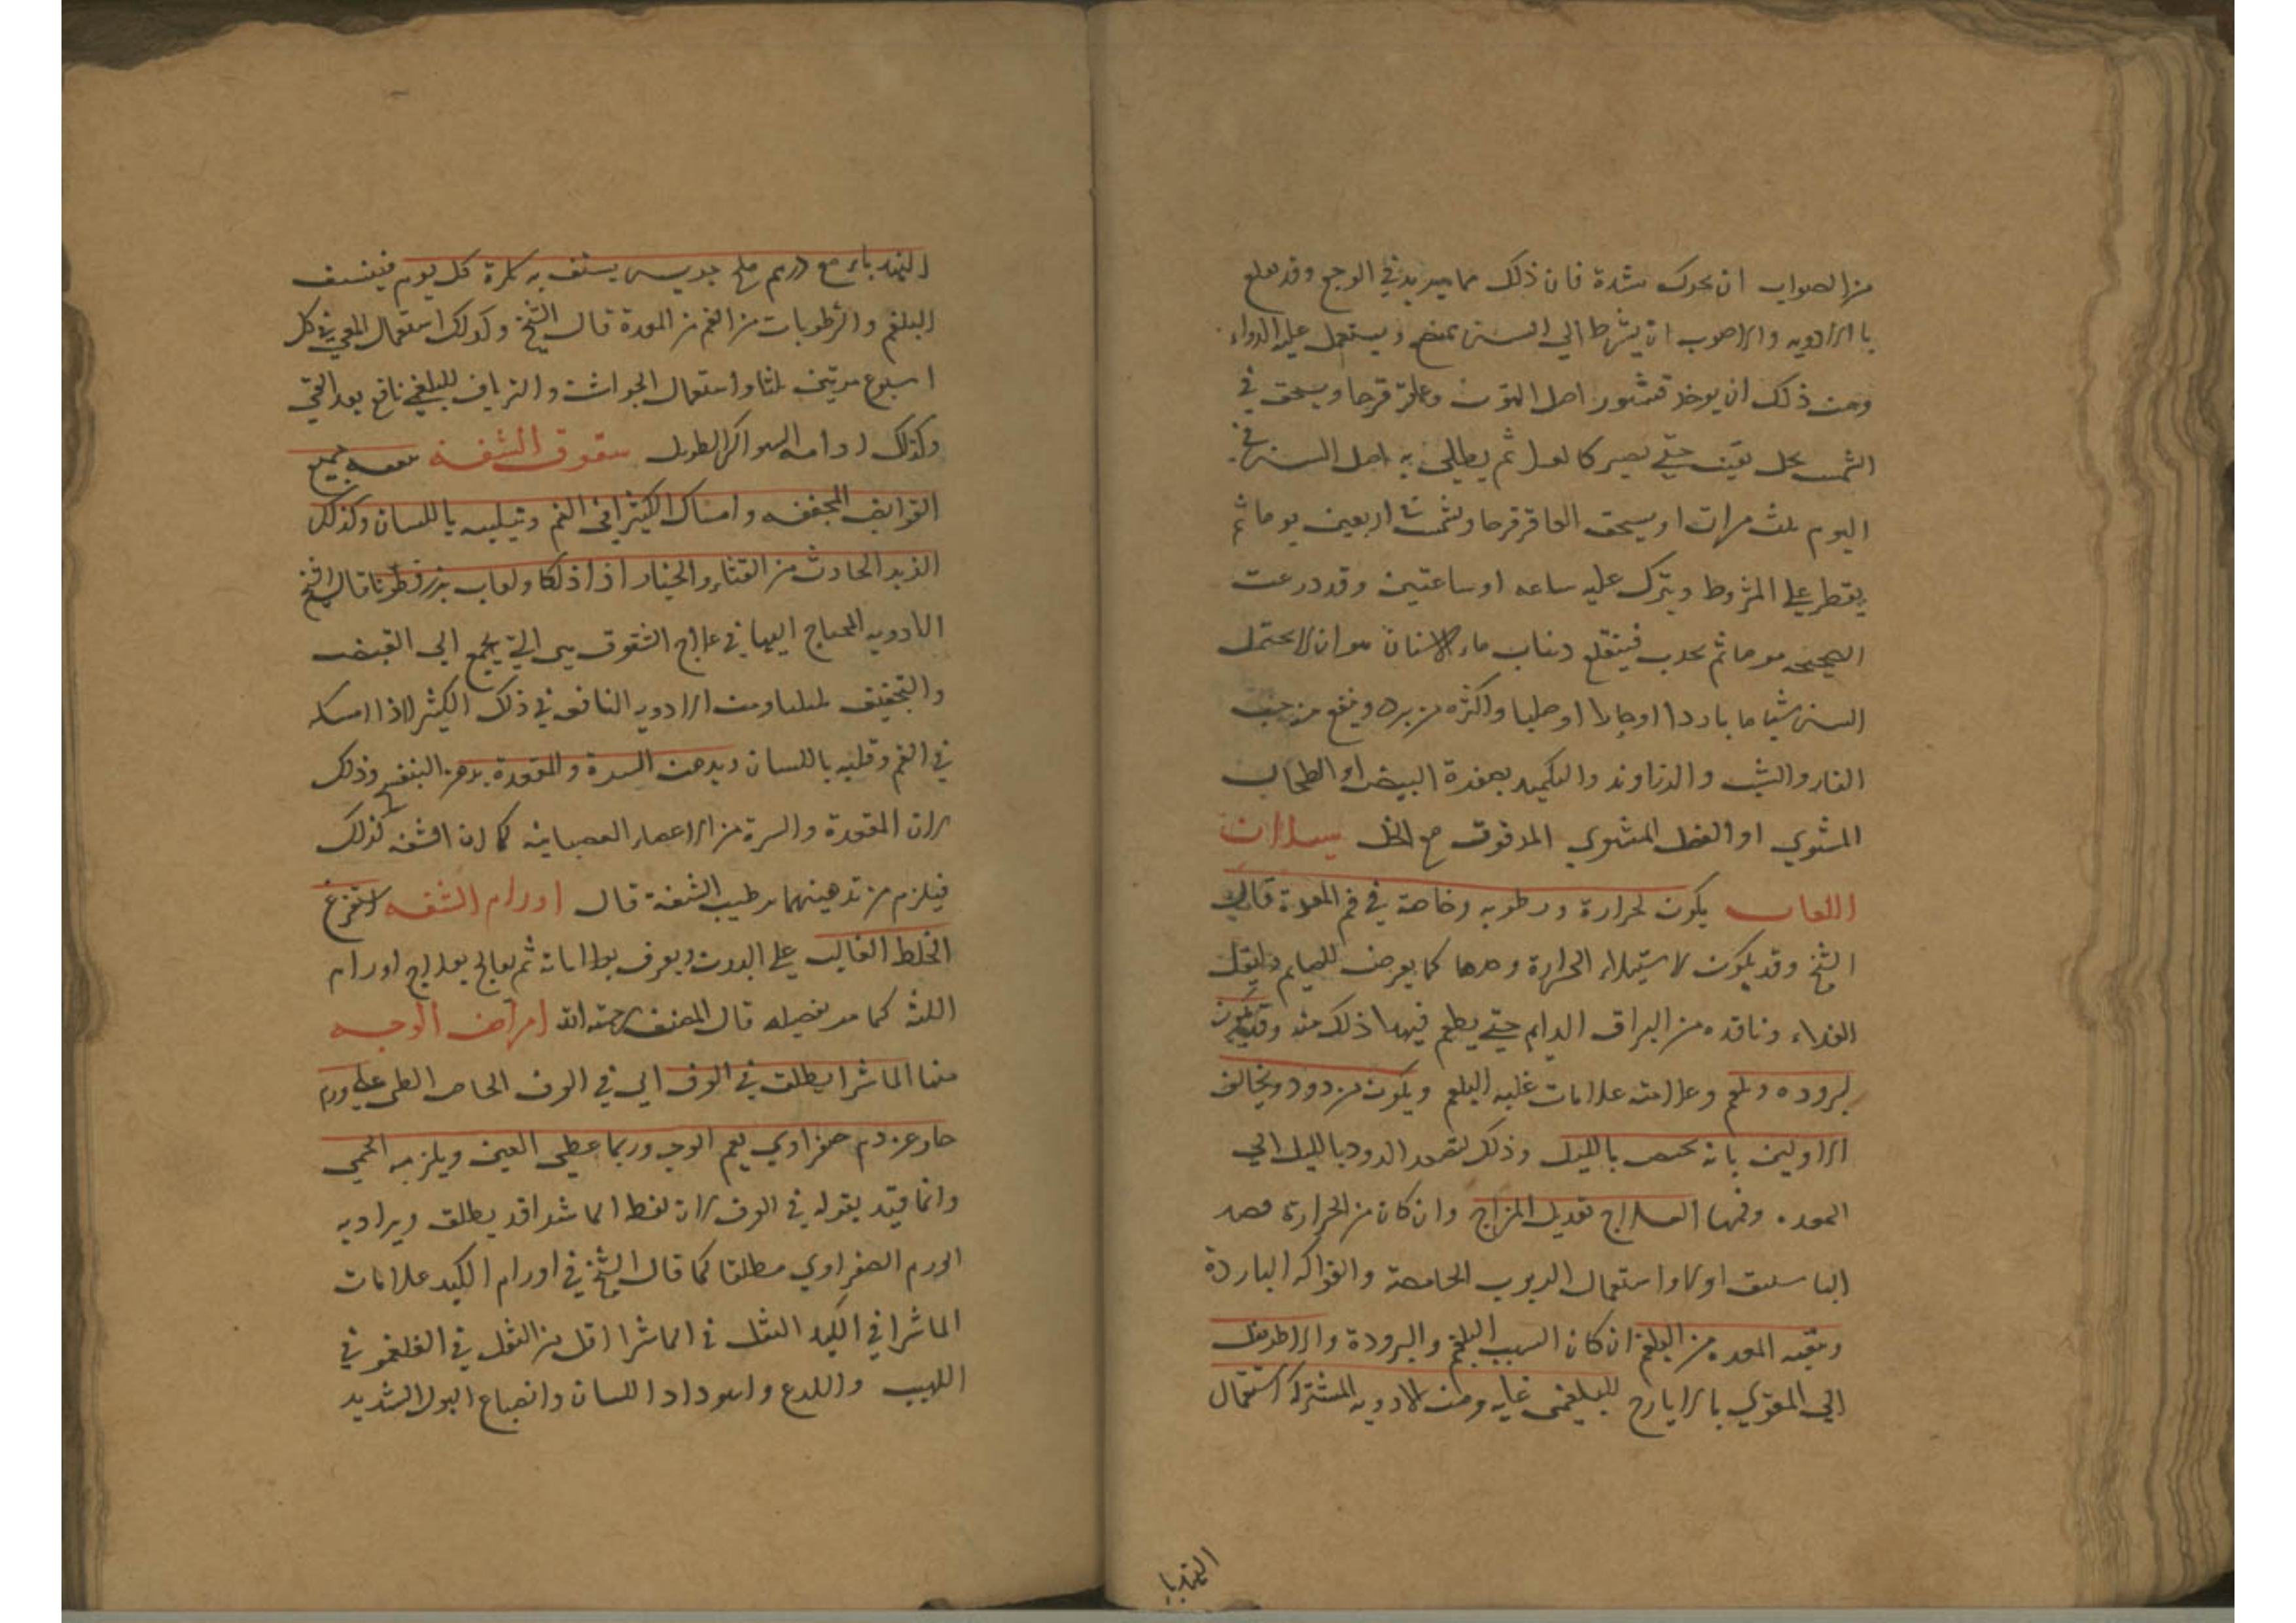 من الصواب ان يحرك بشدة فان ذلك مما يزيد في الوجع وقد يقلع
بالادويه والاصوب ان يشرط الي السن بمبضع ويستعمل عليه الدواء
ومن ذلك ان يوخذ قشور اصل التوت وعاقر قرحا ويسحق في
الشمس بخل ثقيف حتي يصير كالعسل ثم يطلي به اصل السن في
اليوم ثلث مرات او يسحق العاقر قرحا ويشمس اربعين يوما ثم
يقطر علي المشروط ويترك عليه ساعه او ساعتين وقد درعت
الصحيحه موما ثم يجذب فينقلع ذهاب ماء الاسنان هو ان لا يحتمل
السن شيا ما باردا او حارا او صلبا واكثره من برد وينفع من حب
الغار والشب والزراوند والتكميد بصفرة البيض او الطحال
المشوي او العنصل المشوي المدقوق مع الخل سيلان
اللعاب يكون لحرارة ورطوبه وخاصة في فم المعدة قال
الشيخ وقد يكون لاستيلاء الحرارة وحدها كما يعرض للصايم
الغذاء وناقده من البزاق الدايم حتي يطعم فيهدا ذلك منه وقد يكون
لبروده وبلغم وعلامته علامات غلبه البلغم ويكون من دود ويخالف
الاولين بانه يختص بالليل وذلك لتصعد الدود بالليل الي
المعده وفمها العلاج تعديل المزاج وان كان من الحرارة فصد
الباسليق اولا واستعمال الربوب الحامضة والفواكه الباردة
وتنقيه المعده من البلغم ان كان السبب البلغم والبرودة والاطريفل
الي المقوي بالايارج للبلغمي غايه ومن الادويه المشتركه استعمال
الهندبا
الهندباء مع درهم ملح جريس يستف به بكرة كل يوم فينشف
البلغم والرطوبات من الفم من المعدة قال الشيخ وكذلك استعمال القي في كل
اسبوع مرتين ثلثا واستعمال الجوارشن والترياق للبلغمي نافع بعد القي
وكذلك ادامه السواك الطويل شقوق الشفه ينفعه جميع
القوابض المجففه وامساك الكثيرا في الفم وتقليبه باللسان وكذلك
الزبد الحادث من القثاء والخيار اذا ذلكا ولعاب بزر قطونا قال الشيخ
الادويه المحتاج اليها في علاج الشقوق هي التي تجمع الي القبض
والتجفيف تليينا ومن الادويه النافعه في ذلك الكثيرا اذا امسكه
في الفم وقلبه باللسان ويدهن السرة والمقعدة بدهن البنفسج وذلك
لان المقعدة والسرة من الاعضاء العصبانيه كما ان الشفه كذلك
فيلزم من تدهينهما ترطيب الشفة قال اورام الشفه استفراغ
الخلط الغالب علي البدن ويعرف بعلاماته ثم يعالج بعلاج اورام
اللثه كما مر تفصيله قال المصنف رحمه الله امراض الوجه
منها الماشرا يطلق في العرف اي في العرف الخاص الطبي علي ورم
حار عن دم صفراوي يعم الوجه وربما غطي العين ويلزمه الحمي
وانما قيد بقوله في العرف لان لفظ الماشرا قد يطلق ويراد به
الورم الصفراوي مطلقا كما قال الشيخ في اورام الكبد علامات
الماشرا في الكبد الثقل في الماشرا اقل من الثقل في الفلغموني
اللهيب واللدع واسوداد اللسان وانصباع البول الشديد